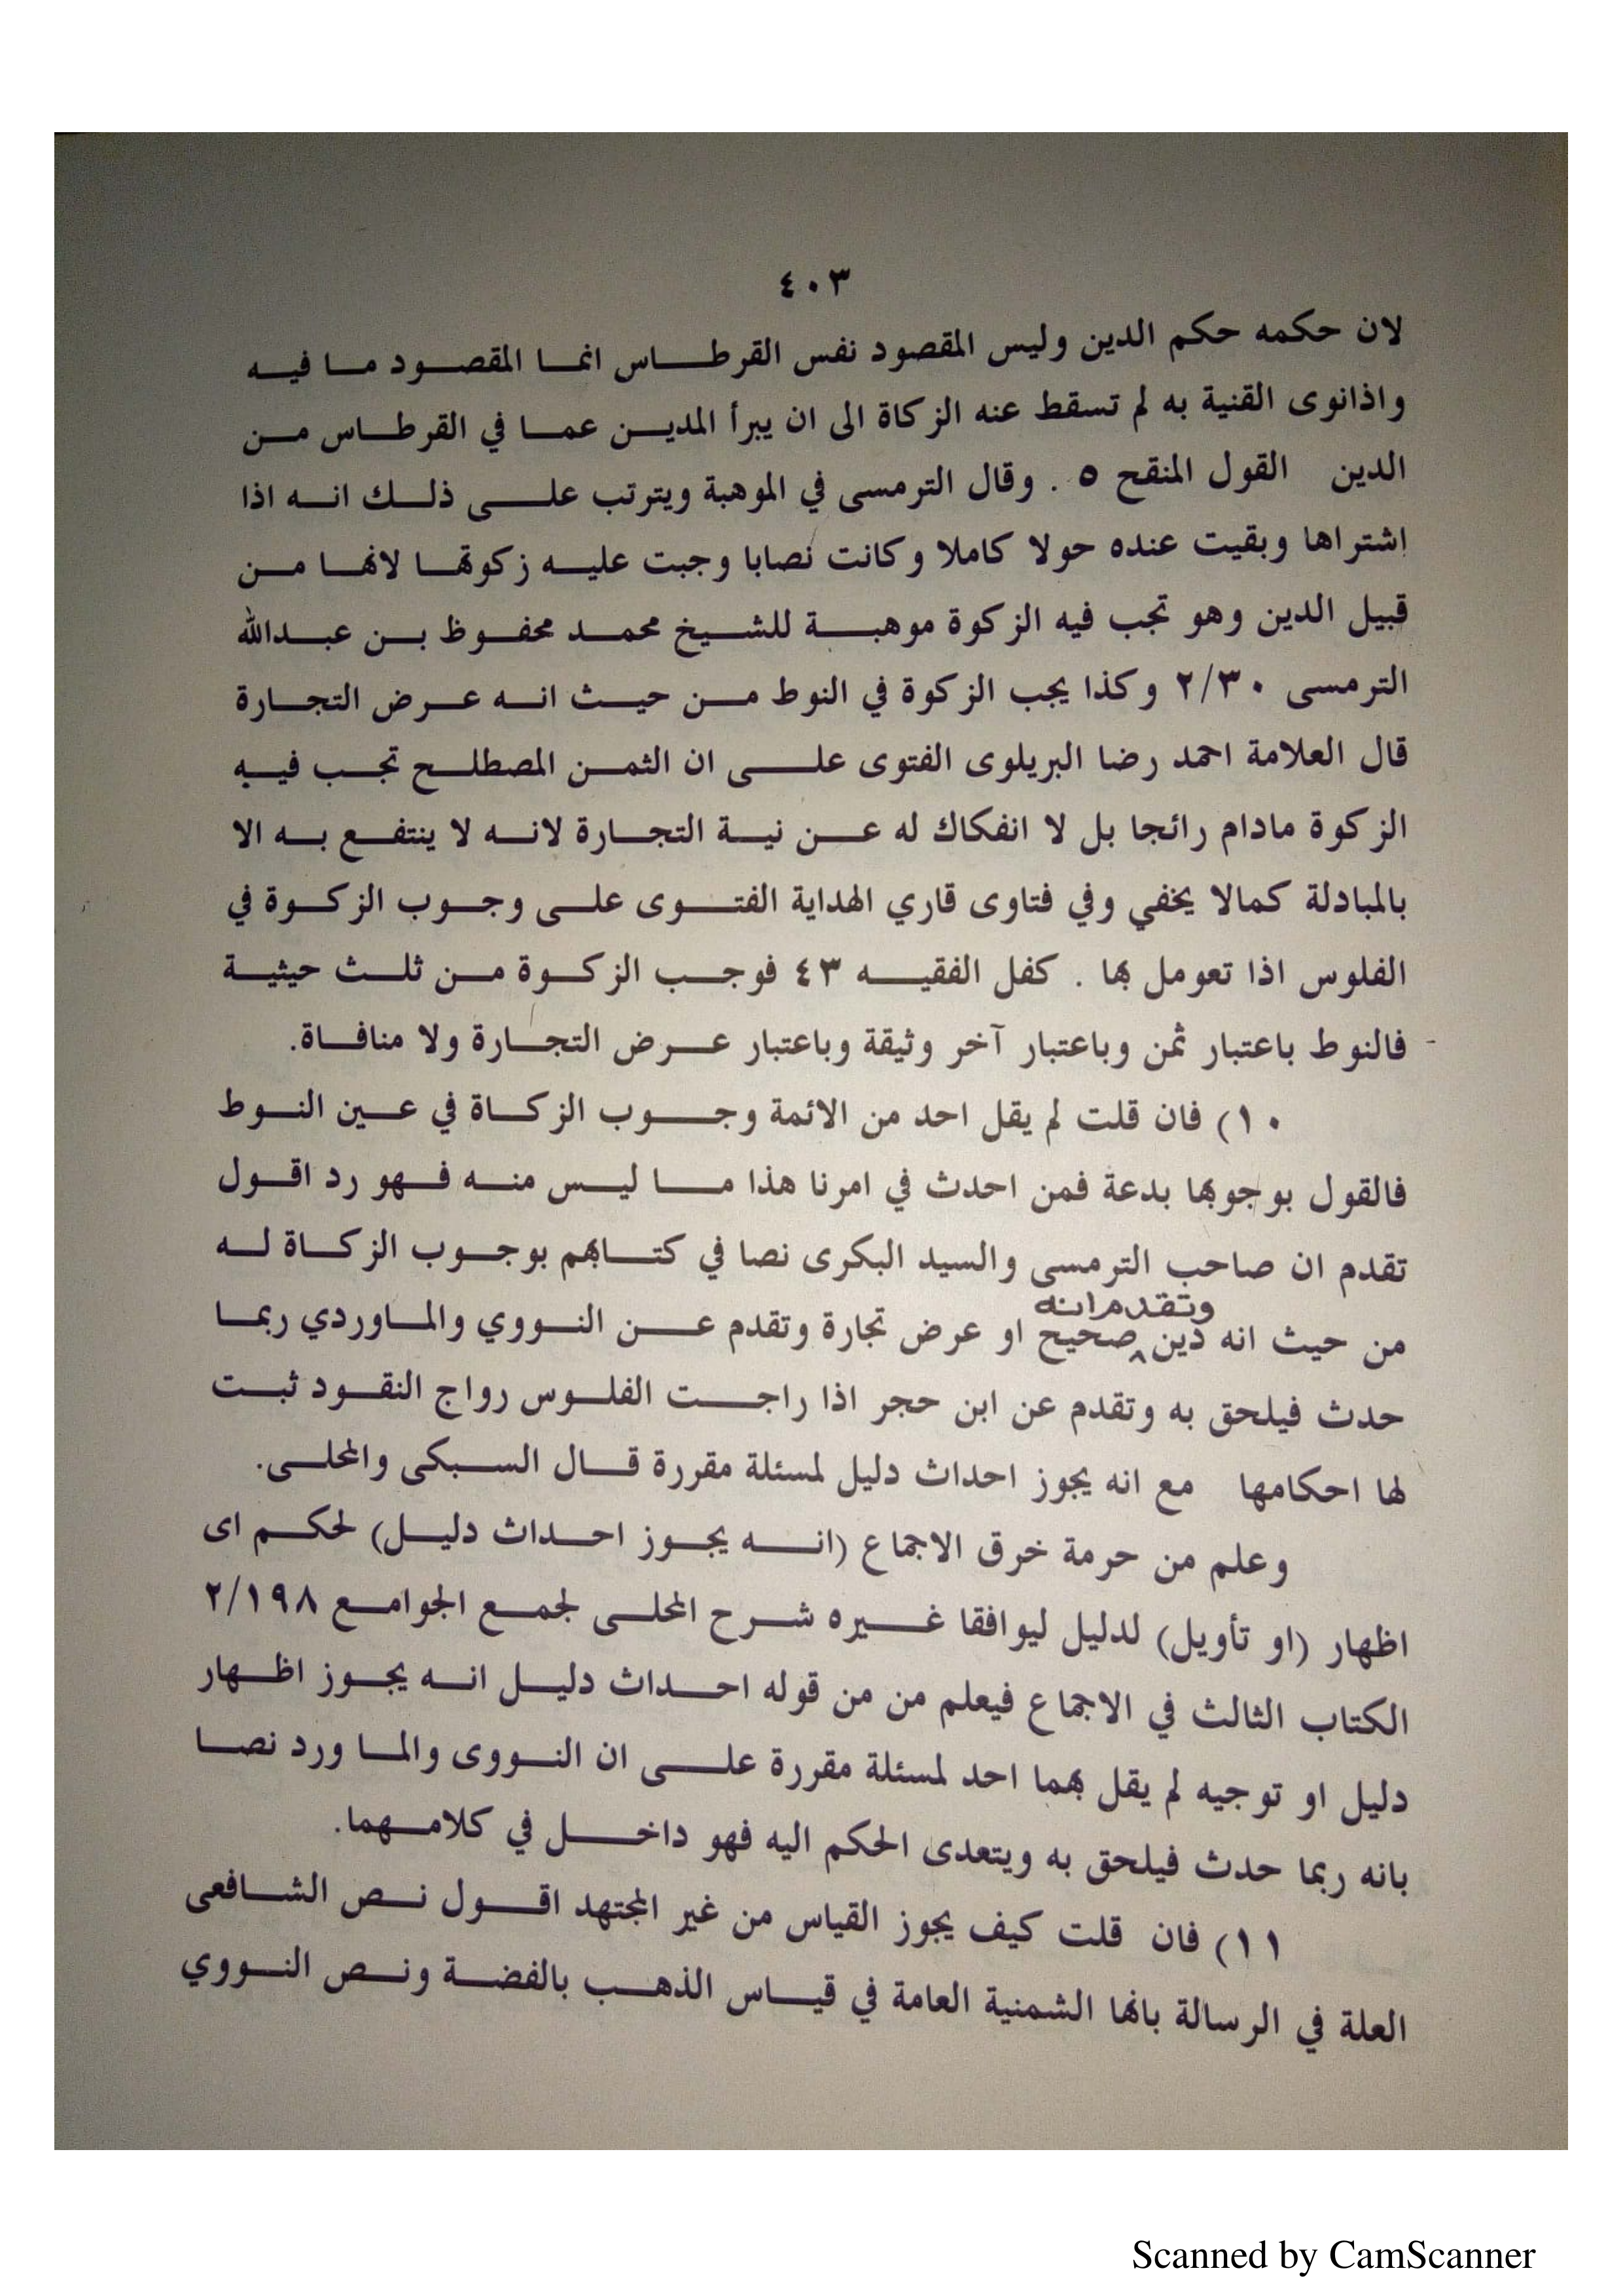 ٤٠٣
لان حكمه حكم الدين وليس المقصود نفس القرطاس انما المقصود ما فيه
واذانوى القنية به لم تسقط عنه الزكاة الى ان يبرأ المدين عما في القرطاس من
الدين القول المنقح ٥ . وقال الترمسى في الموهبة ويترتب على ذلك انه اذا
اشتراها وبقيت عنده حولا كاملا وكانت نصابا وجبت عليه زكوتها لانها من
قبيل الدين وهو تجب فيه الزكوة موهبة للشيخ محمد محفوظ بن عبدالله
الترمسى ٢/٣٠ وكذا يجب الزكوة في النوط من حيث انه عرض التجارة
قال العلامة احمد رضا البريلوى الفتوى على ان الثمن المصطلح تجب فيه
الزكوة مادام رائجا بل لا انفكاك له عن نية التجارة لانه لا ينتفع به الا
بالمبادلة كمالا يخفي وفي فتاوى قاري الهداية الفتوى على وجوب الزكوة في
الفلوس اذا تعومل بها . كفل الفقيه ٤٣ فوجب الزكوة من ثلث حيثية
فالنوط باعتبار ثمن وباعتبار آخر وثيقة وباعتبار عرض التجارة ولا منافاة.
١٠) فان قلت لم يقل احد من الائمة وجوب الزكاة في عين النوط
فالقول بوجوبها بدعة فمن احدث في امرنا هذا ما ليس منه فهو رد اقول
تقدم ان صاحب الترمسى والسيد البكرى نصا في كتابهم بوجوب الزكاة له
وتقدم انه
من حيث انه دين صحيح او عرض تجارة وتقدم عن النووي والماوردي ربما
حدث فيلحق به وتقدم عن ابن حجر اذا راجت الفلوس رواج النقود ثبت
لها احكامها مع انه يجوز احداث دليل لمسئلة مقررة قال السبكى والمحلى.
وعلم من حرمة خرق الاجماع (انه يجوز احداث دليل) لحكم اى
اظهار (او تأويل) لدليل ليوافقا غيره شرح المحلى لجمع الجوامع ٢/١٩٨
الكتاب الثالث في الاجماع فيعلم من من قوله احداث دليل انه يجوز اظهار
دليل او توجيه لم يقل بهما احد لمسئلة مقررة على ان النووى والما ورد نصا
بانه ربما حدث فيلحق به ويتعدى الحكم اليه فهو داخل في كلامهما.
١١) فان قلت كيف يجوز القياس من غير المجتهد اقول نص الشافعى
العلة في الرسالة بانها الشمنية العامة في قياس الذهب بالفضة ونص النووي
Scanned by CamScanner